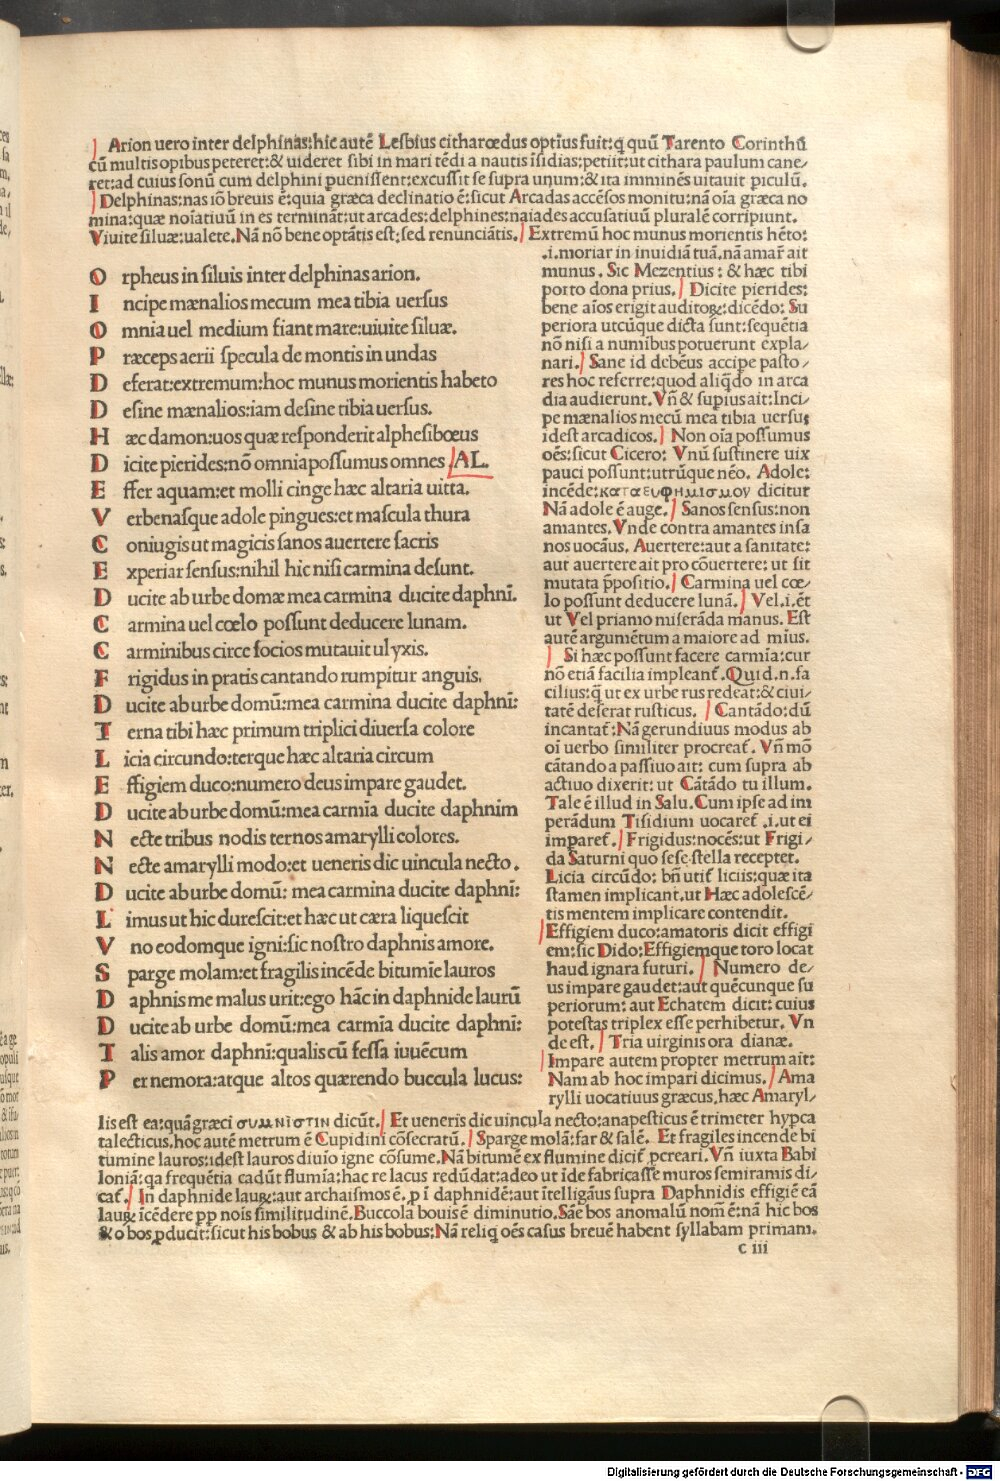 Arion uero inter delphinas:hic autē Lesbius citharœdus optīus fuit:ꝗ quū Tarento Corinthū
cū multis opibus peteret:& uideret sibi in mari tēdi a nautis īsidias:petiit:ut cithara paulum cane/
ret:ad cuius sonū cum delphini puenissent:excussit se supra unum:& ita imminēs uitauit piculū.
Delphinas:nas iō breuis ē:quia græca declinatio ē:sicut Arcadas accēsos monitu:nā oīa græca no
mina:quæ noīatiuū in es termināt:ut arcades:delphines:naiades accusatiuū pluralē corripiunt.
Viuite siluæ:ualete.Nā nō bene optātis est:sed renunciātis. Extremū hoc munus morientis hēto:
O rpheus in siluis inter delphinas arion.
I ncipe mænalios mecum mea tibia uersus
O mnia uel medium fiant mare:uiuite siluæ.
P ræceps aerii specula de montis in undas
D eferat:extremum:hoc munus morientis habeto
D esine mænalios:iam desine tibia uersus.
H æc damon:uos quæ responderit alphesibœus
D icite pierides:nō omnia possumus omnes AL.
E ffer aquam:et molli cinge hæc altaria uitta.
V erbenasque adole pingues:et mascula thura
C oniugis ut magicis sanos auertere sacris
E xperiar sensus:nihil hic nisi carmina desunt.
D ucite ab urbe domæ mea carmina ducite daphnī.
C armina uel cœlo possunt deducere lunam.
C arminibus circe socios mutauit ulyxis.
F rigidus in pratis cantando rumpitur anguis.
D ucite ab urbe domū:mea carmina ducite daphnī:
T erna tibi hæc primum triplici diuersa colore
L icia circundo:terque hæc altaria circum
E ffigiem duco:numero deus impare gaudet.
D ucite ab urbe domū:mea carmīa ducite daphnim
N ecte tribus nodis ternos amarylli colores.
N ecte amarylli modo:et ueneris dic uincula necto.
D ucite ab urbe domū: mea carmina ducite daphnī:
L imus ut hic durescit:et hæc ut cæra liquescit
V no eodomque igni:sic nostro daphnis amore.
S parge molam:et fragilis incēde bitumīe lauros
D aphnis me malus urit:ego hāc in daphnide laurū
D ucite ab urbe domū:mea carmīa ducite daphnī:
T alis amor daphnī:qualis cū fessa iuuēcum
P er nemora:atque altos quærendo buccula lucus:
.i.moriar in inuidiā tuā.nā amar̄ ait
munus. Sic Mezentius: & hæc tibi
porto dona prius. Dicite pierides:
bene aīos erigit auditoꝝ:dicēdo: Su
periora utcūque dicta sunt:sequētia
nō nisi a numībus potuerunt expla/
nari. Sane id debēus accipe pasto/
res hoc referre:quod aliꝗdo in arca
dia audierunt.Vñ & supius ait:Inci/
pe mænalios mecū mea tibia uersus
idest arcadicos. Non oīa possumus
oēs:sicut Cicero: Vnū sustinere uix
pauci possunt:utrūque nēo. Adole:
incēde:κατα ευφημισμου dicitur
Nā adole ē auge. Sanos sensus:non
amantes.Vnde contra amantes insa
nos uocāus. Auertere:aut a sanitate:
aut auertere ait pro cōuertere: ut sit
mutata p̄positio. Carmina uel cœ/
lo possunt deducere lunā. Vel.i.ēt
ut Vel priamo miserāda manus. Est
autē argumētum a maiore ad mīus.
Si hæc possunt facere carmīa:cur
nō etiā facilia impleant̄. Quid.n.fa
cilius:ꝗ ut ex urbe rus redeat:& ciui/
tatē deserat rusticus. Cantādo:dū
incantat̄:Nā gerundiuus modus ab
oī uerbo similiter procreat̄. Vñ mō
cātando a passiuo ait: cum supra ab
actiuo dixerit: ut Cātādo tu illum.
Tale ē illud in Salu. Cum ipse ad im
perādum Tisidium uocaret̄ .i.ut ei
imparet̄. Frigidus:nocēs:ut Frigi/
da Saturni quo sese stella receptet.
Licia circūdo: bñ utit̄ liciis:quæ ita
stamen implicant.ut Hæc adolescē/
tis mentem implicare contendit.
Effigiem duco:amatoris dicit effigi
em:sic Dido:Effigiemque toro locat
haud ignara futuri. Numero de/
us impare gaudet:aut quēcunque su
periorum: aut Echatem dicit: cuius
potestas triplex esse perhibetur. Vn
de est. Tria uirginis ora dianæ.
Impare autem propter metrum ait:
Nam ab hoc impari dicimus. Ama
rylli uocatiuus græcus,hæc Amaryl/
lis est ea:quā græci συμνιστιν dicūt. Et ueneris dic uincula necto:anapesticus ē trimeter hypca
talecticus,hoc autē metrum ē Cupidini cōsecratū. Sparge molā:far & salē. Et fragiles incende bi
tumine lauros:idest lauros diuio igne cōsume.Nā bitumē ex flumine dicit̄ pcreari. Vñ iuxta Babi
loniā:qa frequētia cadūt flumīa:hac re lacus redūdat:adeo ut īde fabricasse muros semiramis di/
cat̄. In daphnide lauꝝ:aut archaismos ē.p ī daphnidē:aut ītelligāus supra Daphnidis effigiē eā
lauꝝ īcēdere pp nois similitudinē.Buccola bouis ē diminutio.Sāe bos anomalū nom̄ ē:nā hic bos
& o bos ꝓducit:sicut his bobus & ab his bobus:Nā reliꝗ oēs casus breuē habent syllabam primam.
c iii
Digitalisierung gefördert durch die Deutsche Forschungsgemeinschaft - DFG